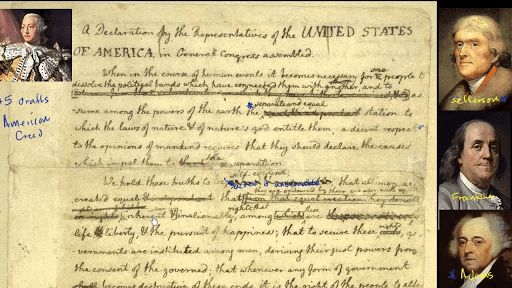 A Declaration by the Representatives of the UNITED STATES
OF AMERICA, in General Congress assembled.
When in the course of human events it becomes necessary for one people to
dissolve the political bands which have connected them with another, and to
separate and equal
same among the powers of the earth the station to
which the laws of nature & of nature's god entitle them, a decent respect
to the opinions of mankind requires that they should declare the causes
which impel them to the separation.
self evident,
We hold these truths to be sacred & undeniable that all men are
they are endowed by their
created equal that from that equal creation they
rights; that these
inherent & inalienable, among which are
life, & liberty, & the pursuit of happiness; that to secure these rights, go
vernments are instituted among men, deriving their just powers from
the consent of the governed; that whenever any form of government
becomes destructive of these ends, it is the right of the people to alter
5 drafts
American
Creed
Jefferson
Franklin
Adams